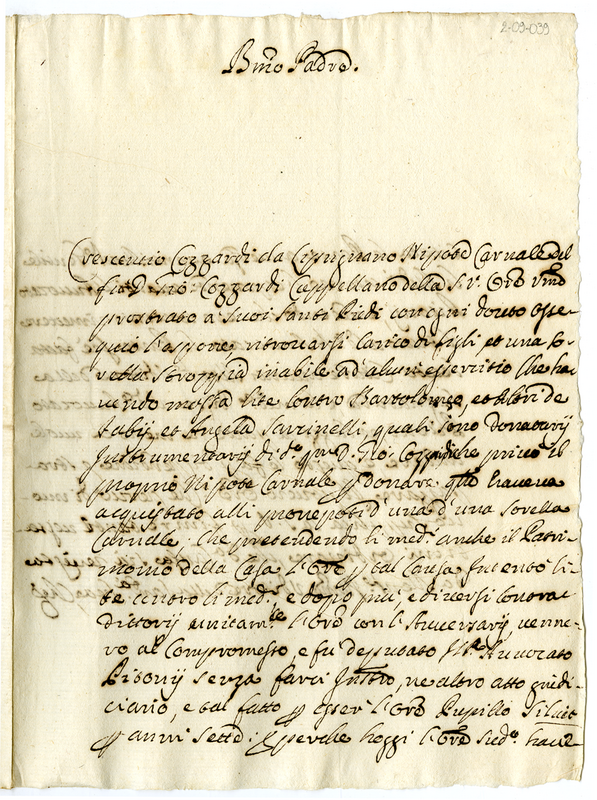 2-09-039
Bmo Padre.
Crescentio Cozzardi da Cipignano Nipote Carnale del
fu D. Gio: Cozzardi Cappellano della S.V. Ore Vmo
prostrato a Suoi Santi Piedi con ogni douto osse
quio l'espone, ritrouarsi Carico di figli et una So
rella Stroppia inabile ad alcun essercitio Che ha
uendo mossa lite Contro Bartolomeo, et Altri de
Fabij, et Angela Sarcinelli quali sono Donatarij
Instrumentarij di do qm D. Gio: Cozzardi che priuò il
proprio Nipote Carnale p donare qto haueua
acquistato alli pronepoti d'una d'una Sorella
Carnale. Che pretendendo li med. anche il Patri-
monio della Casa l'Ore p tal Causa Intentò li-
te contro li med. e dopo più, e diuersi Contra-
dittorij unitamte l'Ore con l'Auuersarij uenne-
ro al Compromesso, e fu deputato Auuocato
Pisonij senza farci Instro, ne altro atto giudi-
ciario, e tal fatto p esser l'Ore Pupillo
p anni Sette: E perche hoggi l'Ore haue-